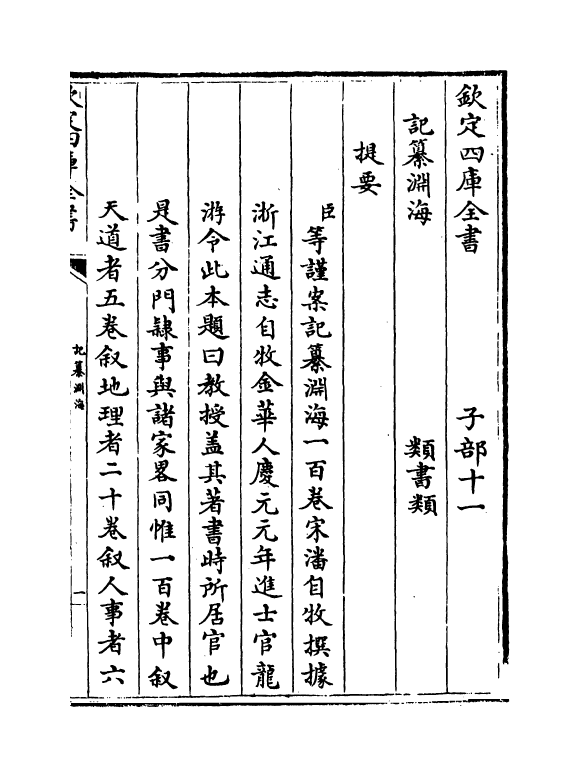 欽定四庫全書　子部十一
記纂淵海　類書類
提要
臣等謹案記纂淵海一百卷宋潘自牧撰據
浙江通志自牧金華人慶元元年進士官龍
游令此本題曰教授盖其著書時所居官也
是書分門隷事與諸家畧同惟一百卷中叙
天道者五卷叙地理者二十卷叙人事者六
欽定四庫全書
記纂淵海
一